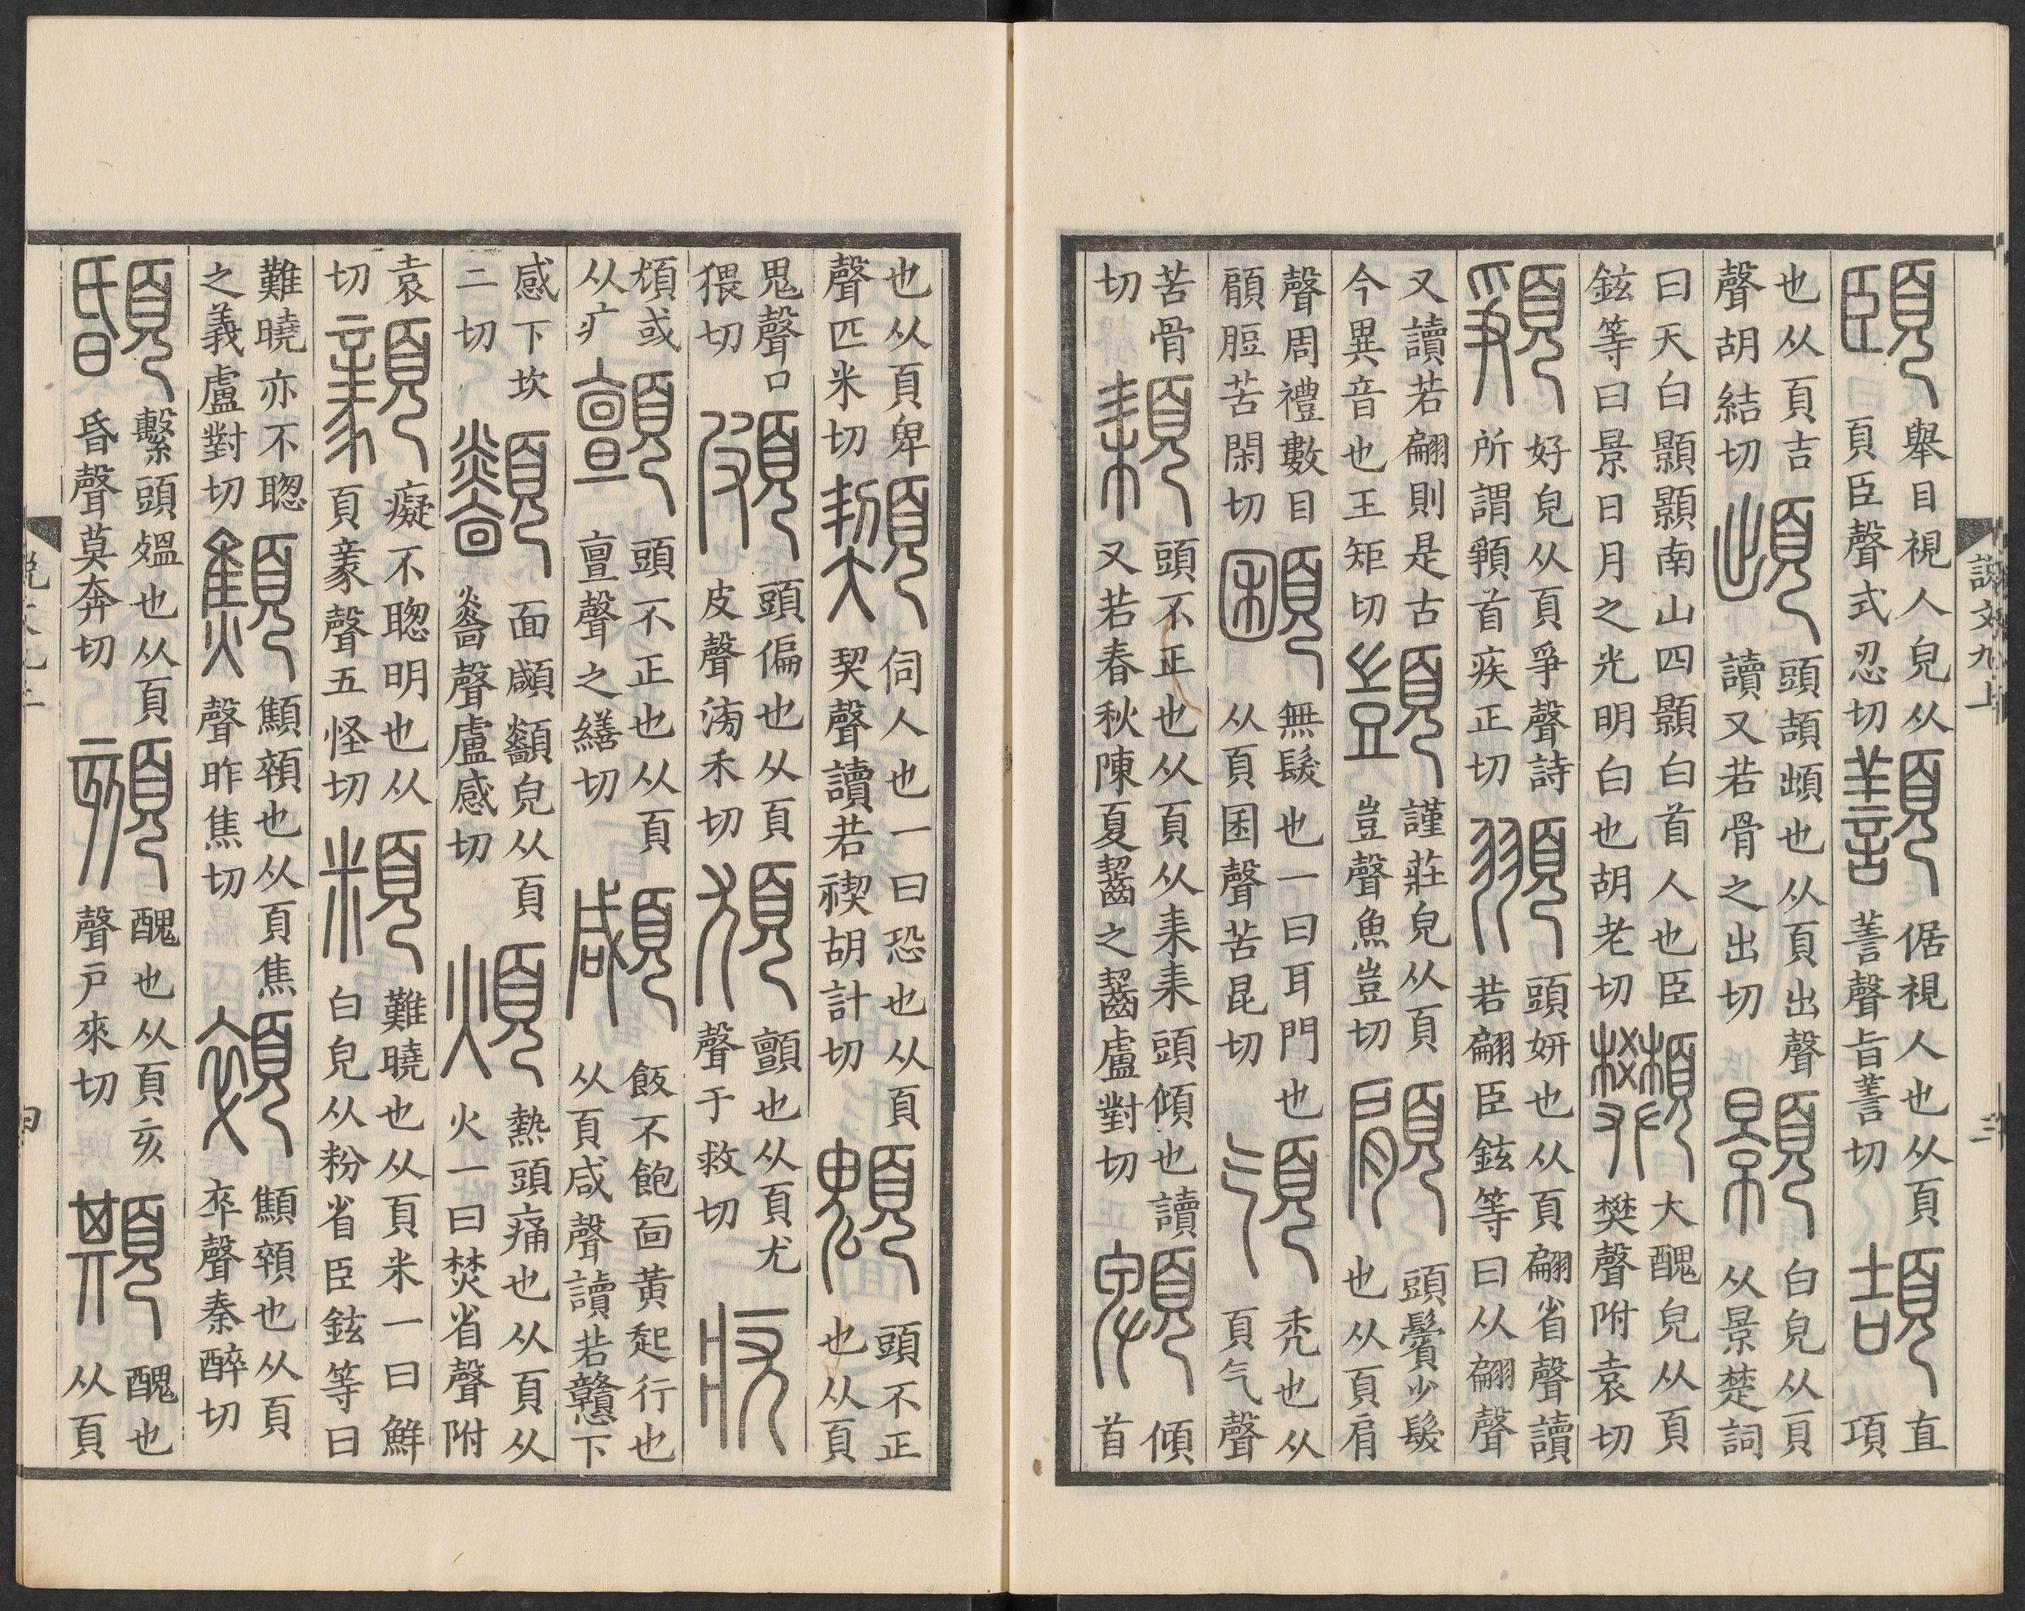 說文九上 三
䪴 舉目視人皃从頁臣聲式忍切 倨視人也从頁善聲旨善切 頡 直項
也从頁吉聲胡結切 䪼 頭頡䪼也从頁出聲讀又若骨之出切 顥 白皃从頁从景楚詞
曰天白顥顥南山四顥白首人也臣鉉等曰景日月之光明白也胡老切 大醜皃从頁樊聲附袁切
好皃从頁爭聲詩所謂首疾正切 頭妍也从頁翩省聲讀若翩臣鉉等曰从翩聲
又讀若翩則是古今異音也王矩切 顗 謹莊皃从頁豈聲魚豈切 顅 頭鬢少髮也从頁肩
聲周禮數目顧脰苦閑切 無髮也一曰耳門也从頁囷聲苦昆切 秃也从頁气聲
苦骨切 頛 頭不正也从頁从耒耒頭傾也讀又若春秋陳夏齧之齧盧對切 䫌 傾首
也从頁卑聲匹米切 䫔 伺人也一曰恐也从頁契聲讀若禊胡計切 䫥 頭不正也从頁
鬼聲口猥切 頗 頭偏也从頁皮聲滂禾切 顫也从頁尤聲于救切 疣
或从疒 顫 頭不正也从頁亶聲之繕切 顑 飯不飽面黃起行也从頁咸聲讀若戇下
感下坎二切 顲 面顑顲皃从頁聲盧感切 煩 熱頭痛也从頁从火一曰焚省聲附
袁切 顡 癡不聰明也从頁䝘聲五怪切 頪 難曉也从頁米一曰鮮白皃从粉省臣鉉等曰
難曉亦不聰之義盧對切 顦 顦顇也从頁焦聲昨焦切 顇 顦顇也从頁卒聲秦醉切
繫頭殟也从頁昏聲莫奔切 頦 醜也从頁亥聲戶來切 䫏 醜也从頁